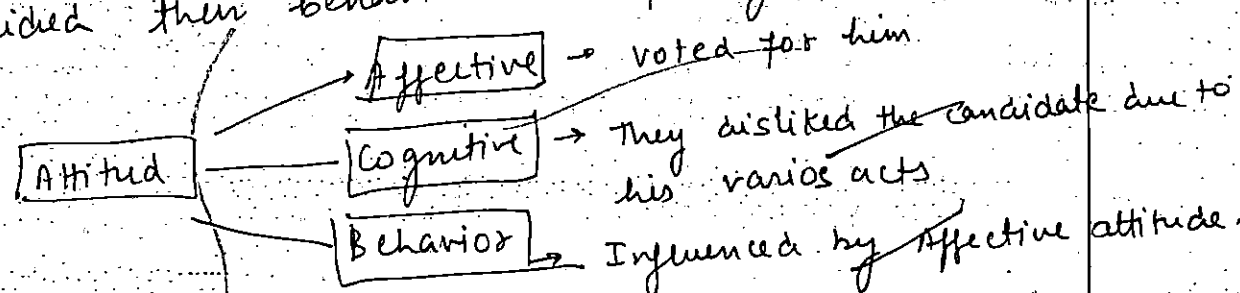 then
Affective → voted for him.
Attitud
Cognitive → They disliked the candidate due to
his varios acts.
Behavior → Influenced by Affective attitude.